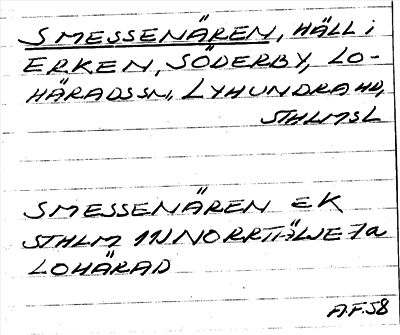 SMESSENÄREN, HÄLL i
ERKEN, SÖDERBY, LO-
HÄRADSSN, LYHUNDRA HD,
STHLMSL
SMESSENÄREN EK
STHLM 11J NORRTÄLJE 7a
LOHÄRAD
A.F. 58